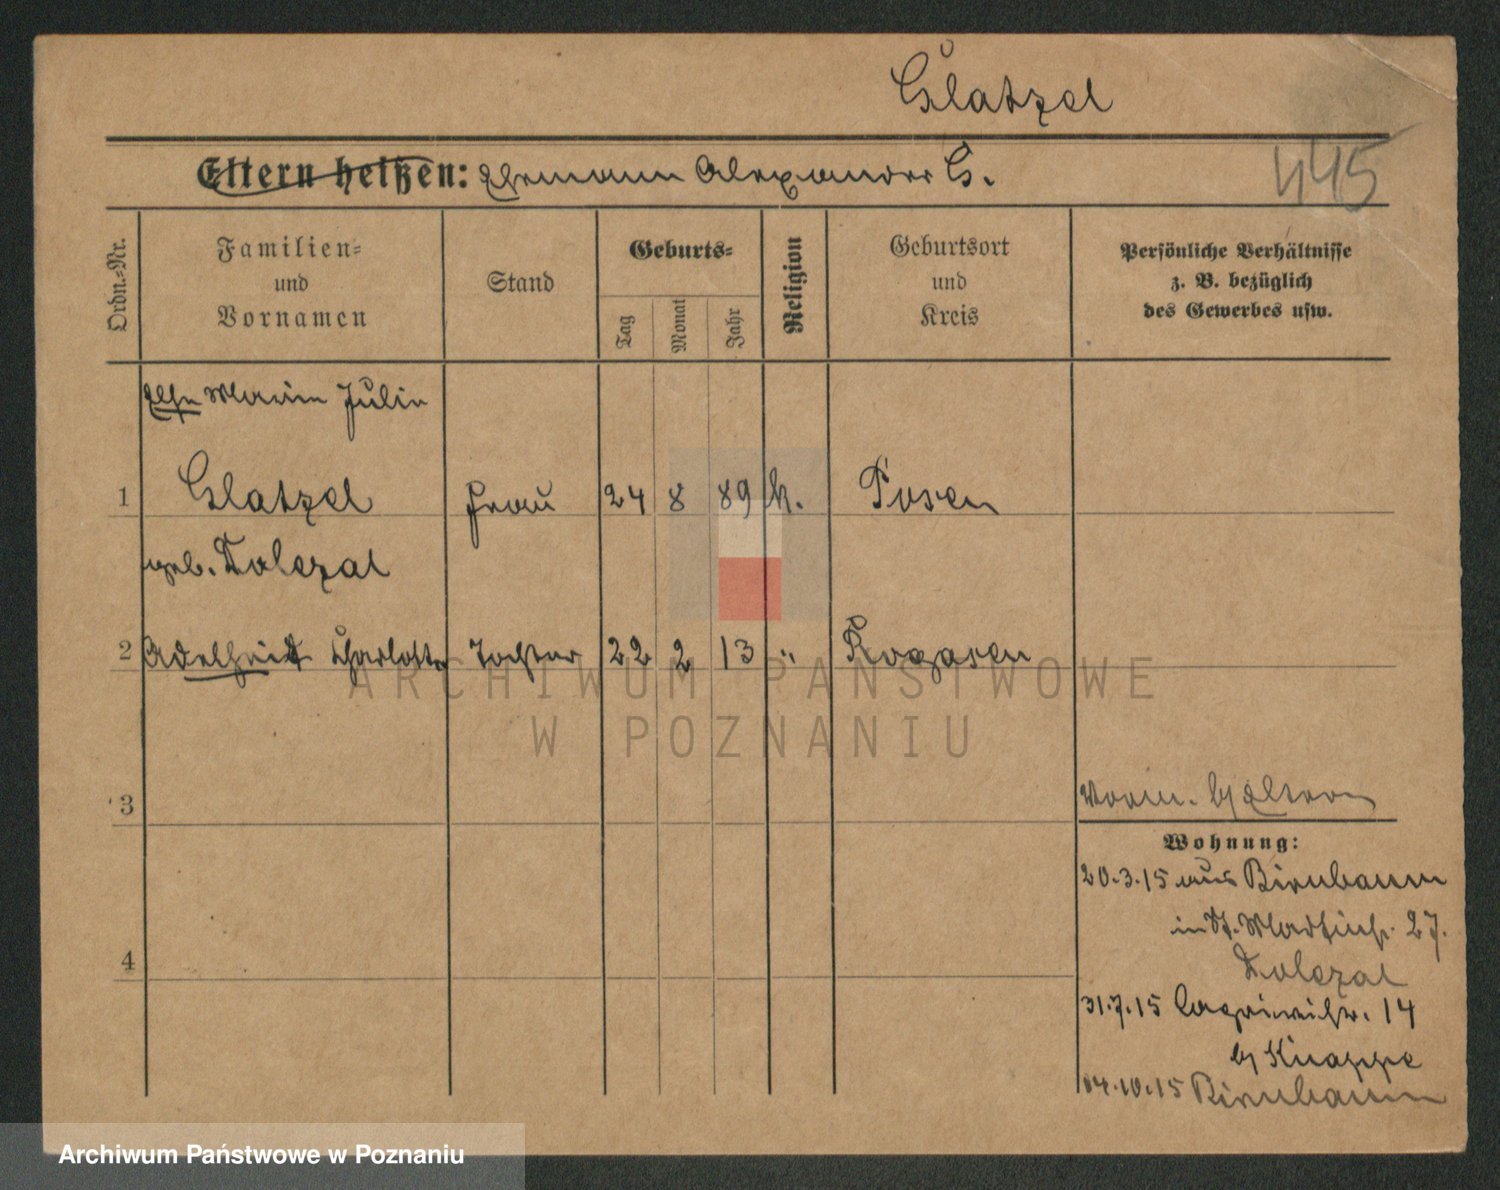 Glatzel
Eltern heißen: Hermann Alexander G.
445
Ordn.-Nr.
Familien-
und
Vornamen
Stand
Geburts-
Tag
Monat
Jahr
Religion
Geburtsort
und
Kreis
Persönliche Verhältnisse
z. B. bezüglich
des Gewerbes usw.
Else Marie Julie
1 Glatzel Frau 24 8 89 k. Posen
geb. Dolezal
2 Adelheid Charlotte Tochter 22 2 13 " Rogasen
3
4
b/ Eltern
Wohnung:
20.3.15 aus Birnbaum
in St. Martinstr. 27.
Dolezal
31.7.15 14
b/ Knappe
04.10.15 Birnbaum
ARCHIWUM PAŃSTWOWE
W POZNANIU
Archiwum Państwowe w Poznaniu